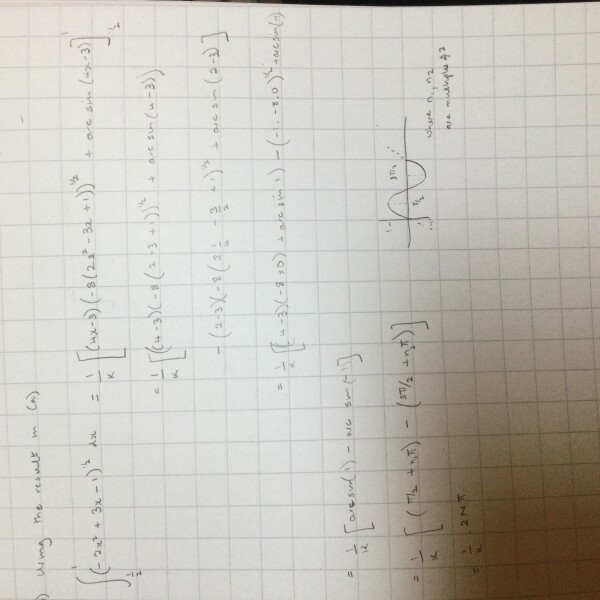 ) Using the result in (a)
∫_{1/2}^{1} (-2x² + 3x - 1)^{1/2} dx = 1/k [(4x-3)(-8(2x² - 3x + 1))^{1/2} + arc sin (4x-3)]_{1/2}^{1}
= 1/k [(4-3)(-8(2-3+1))^{1/2} + arc sin (4-3)
- (2-3)(-8(2 1/4 - 3/2 + 1)^{1/2} + arc sin (2-3)]
= 1/k [(4-3)(-8×0) + arc sin 1) - (-1 · -8.0)^{1/2} + arc sin(-1
= 1/k [arc sin(1) - arc sin(-1)]
= 1/k [(π/2 + n₁π) - (3π/2 + n₂π)]
= 1/k · 2nπ
1
3π/2
π/2
where n₁, n₂
are multiples of 2